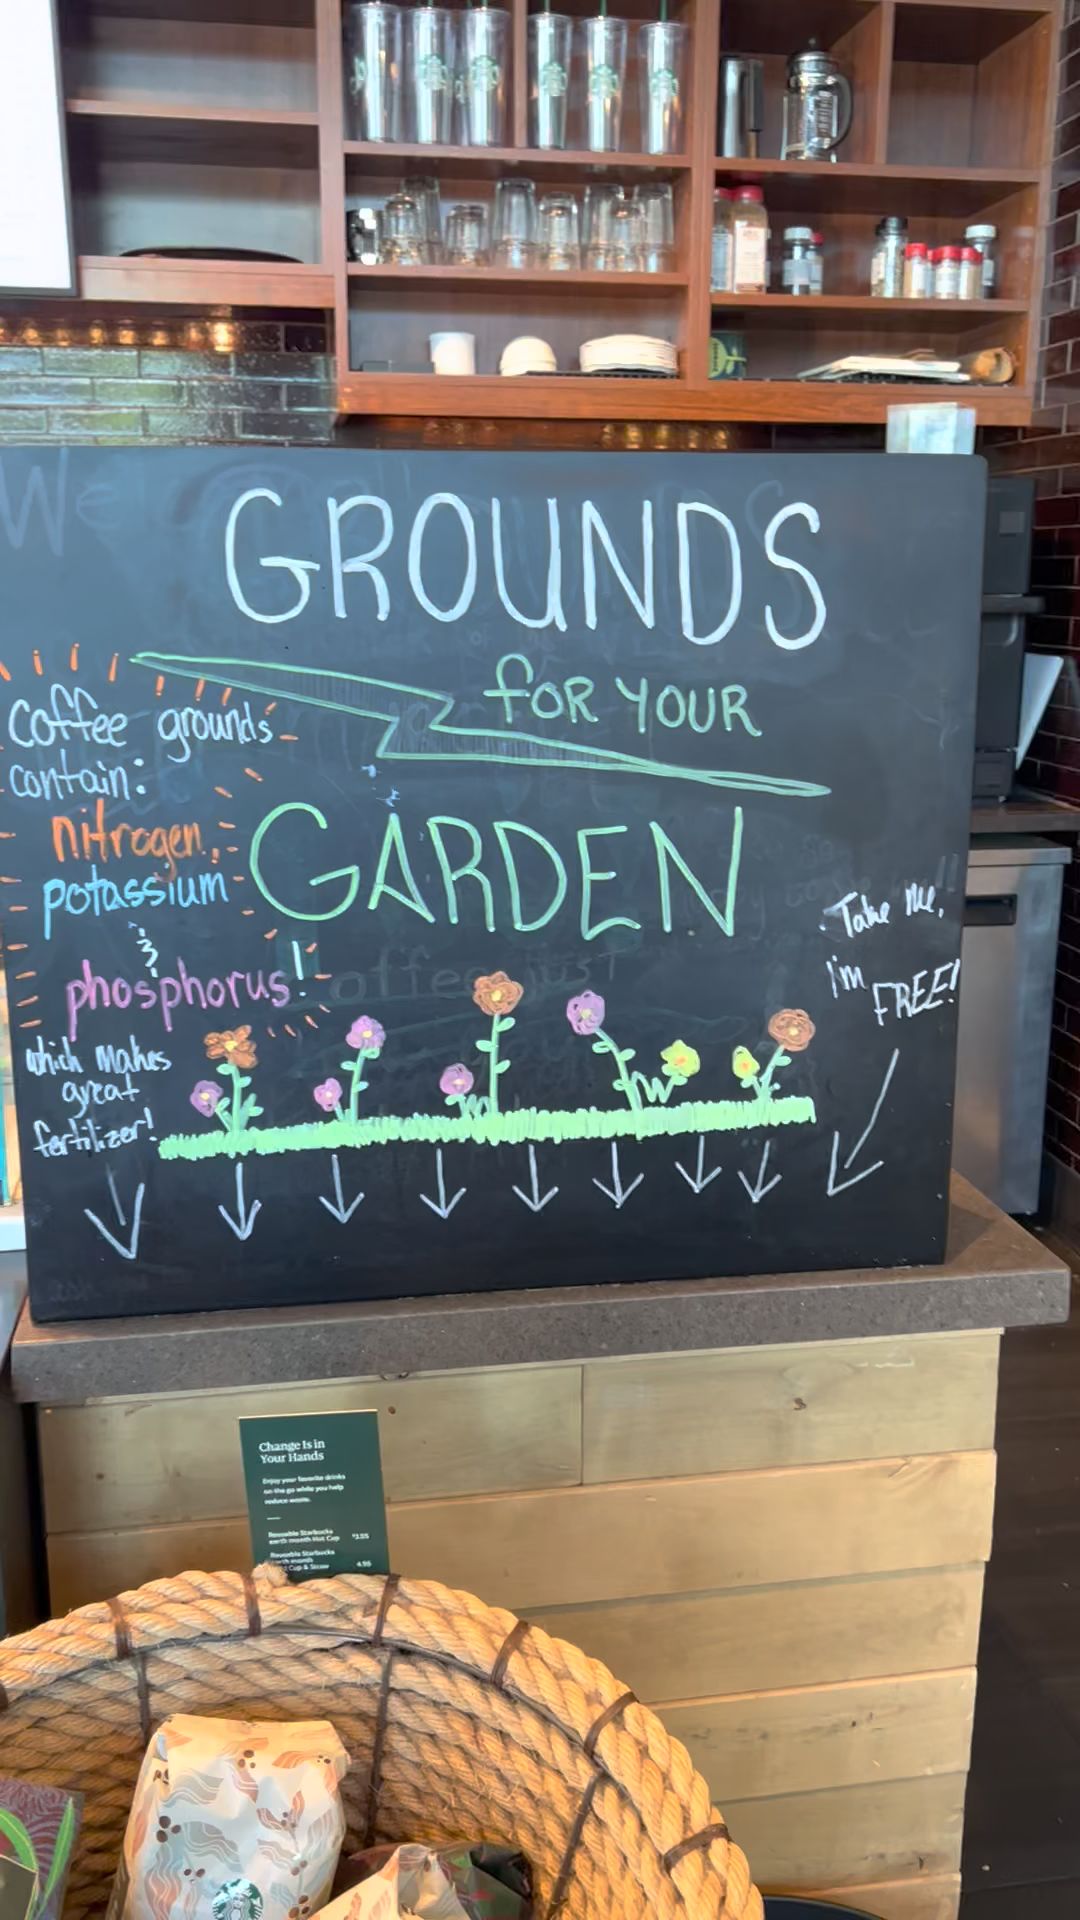 GROUNDS
for YOUR
GARDEN
Coffee grounds
contain:
nitrogen,
potassium
&
phosphorus!
which makes
great
fertilizer!
Take Me,
I'm FREE!
Change Is in
Your Hands
Enjoy your favorite drinks
on the go while you help
reduce waste.
Reusable Starbucks
earth month Hot Cup
Reusable Starbucks
earth month
Cup & Straw 4.95